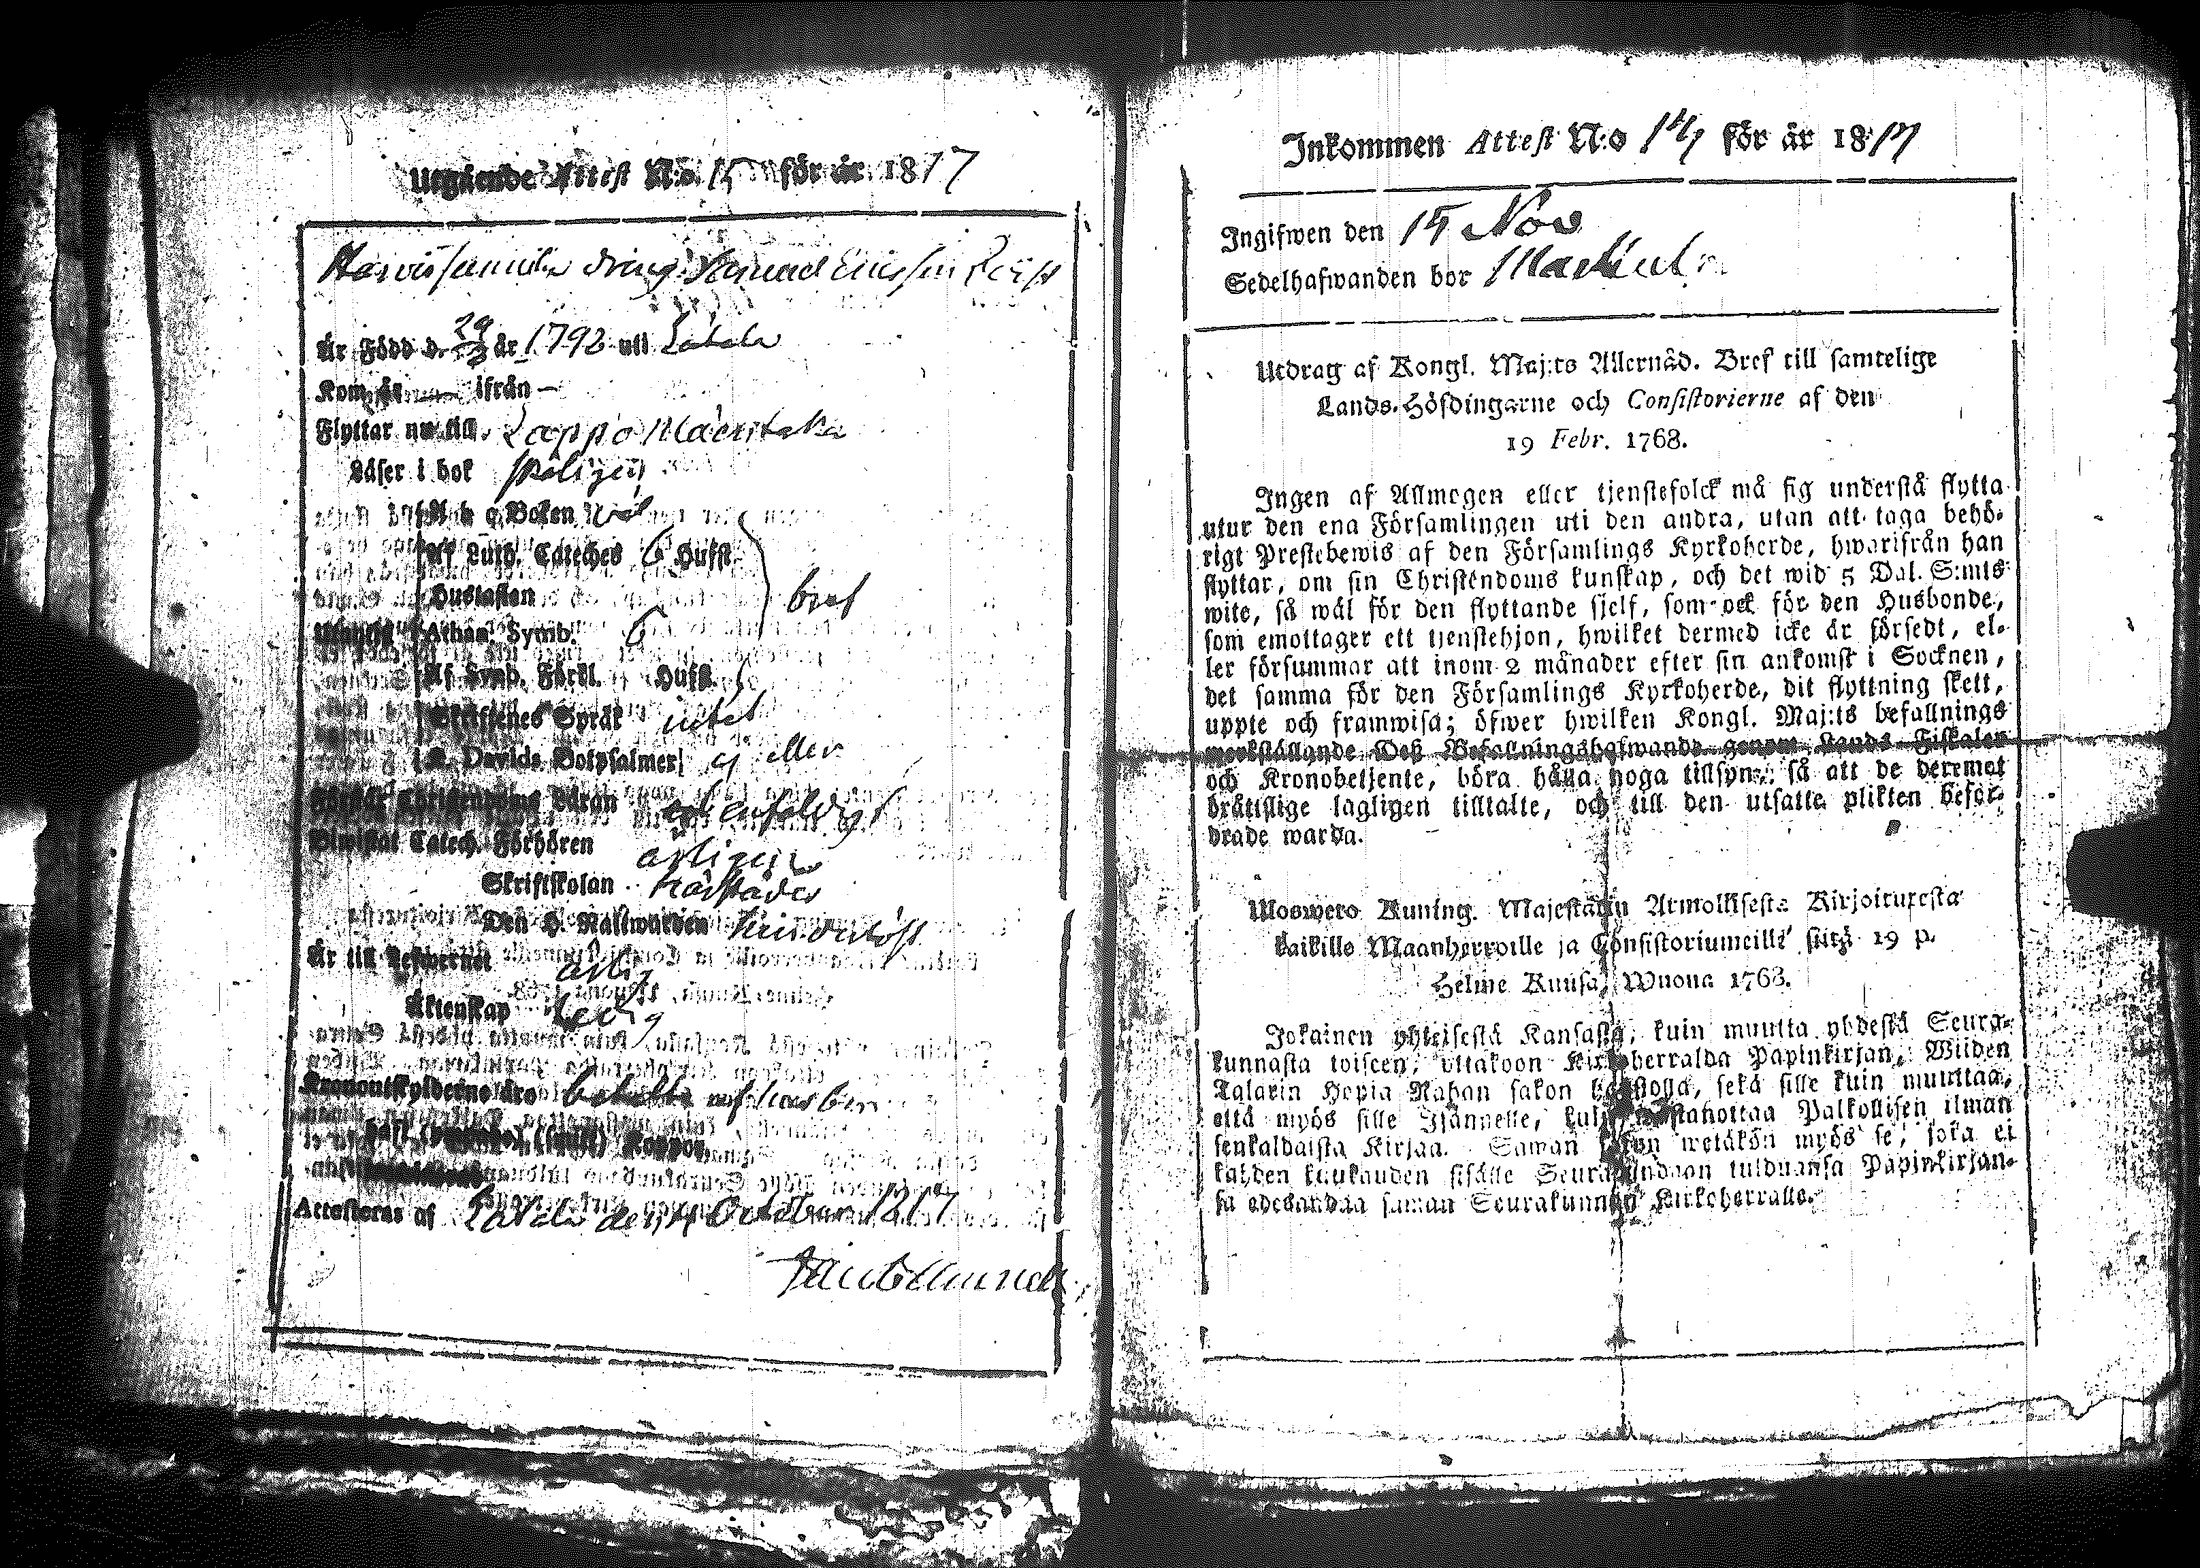 Utgående Attest N:o för år 1817
dräng Samuel Ericsson
Är Född d. 29 år 1792 uti Letala
Kom år — ifrån —
Flyttar nu till Lappo
Läser i bok
A b c Boken wäl
Af Luth. Cateches 6 Hufst.
Hustaflan
bra
Utantill Athan. Symb. 6
Af Symb. Förkl. Hufst.
Skriftenes Språk intet
K. Davids Botpsalmer ej eller
Förstår Christendoms Läran enfaldigt
Biwistat Catech. Förhören årligen
Skriftskolan
Den H. Nattwarden
Är till Lefwernet ärlig
Äktenskap Ledig
Kronoutskylderne äro betalte af husbon
haft Koppor
Attesteras af Letala den 4 October 1817
Inkommen Attest N:o 147 för år 1817
Ingifwen den 15 Nov
Sedelhafwanden bor
Utdrag af Kongl. Maj:ts Allernåd. Bref till samtelige
Lands-Höfdingarne och Consistorierne af den
19 Febr. 1768.
Ingen af Allmogen eller tjenstefolck må sig understå flytta
utur den ena Församlingen uti den andra, utan att taga behö-
rigt Prestebewis af den Församlings Kyrkoherde, hwarifrån han
flyttar, om sin Christendoms kunskap, och det wid 5 Dal. S:mts
wite, så wäl för den flyttande sjelf, som ock för den Husbonde,
som emottager ett tjenstehjon, hwilket dermed icke är försedt, el-
ler försummar att inom 2 månader efter sin ankomst i Socknen,
det samma för den Församlings Kyrkoherde, dit flyttning skett,
uppte och framwisa; öfwer hwilken Kongl. Maj:ts befallnings
werkställande Deß Befallningshafwande genom Lands Fiskaler
och Kronobetjente, böra hålla noga tillsyn, så att de deremot
bråttslige lagligen tilltalte, och till den utsatta plikten befor-
drade warda.
Uloswero Kuning. Majestätin Armollisesta Kirjoituxesta
kaikille Maanherroille ja Consistoriumeille siitä 19 p.
Helme Kuusa, Wuona 1768.
Jokainen yhteisestä Kansasta, kuin muutta yhdestä Seura-
kunnasta toiseen, ottakoon Kirkoherralda Papinkirjan, Wiiden
Talarin Hopia Rahan sakon haastolla, sekä sille kuin muuttaa,
että myös sille Isännelle, kuin wastanottaa Palkollisen ilman
senkaldaista Kirjaa. Saman sakon wetäkön myös se, joka ei
kahden kuukauden sisälle Seurakundaan tulduansa Papinkirjan-
sa edesandaa saman Seurakunnan Kirkoherralle.